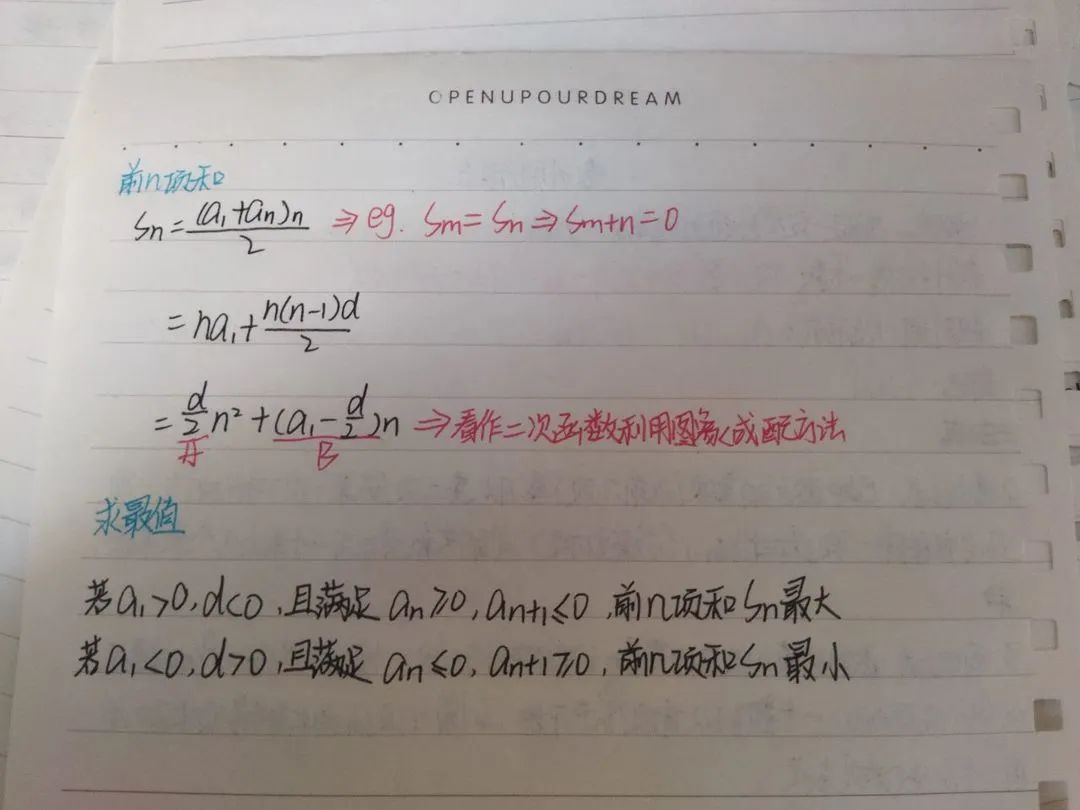 OPENUPOURDREAM
前n项和
Sn=(a₁+an)n/2 ⇒ eg. Sm=Sn⇒Sm+n=0
=na₁+n(n-1)d/2
=d/2 n²+(a₁-d/2)n ⇒看作二次函数利用图象或配方法
A B
求最值
若a₁>0,d<0,且满足 an≥0,an+1≤0,前n项和Sn最大
若a₁<0,d>0,且满足 an≤0,an+1≥0,前n项和Sn最小